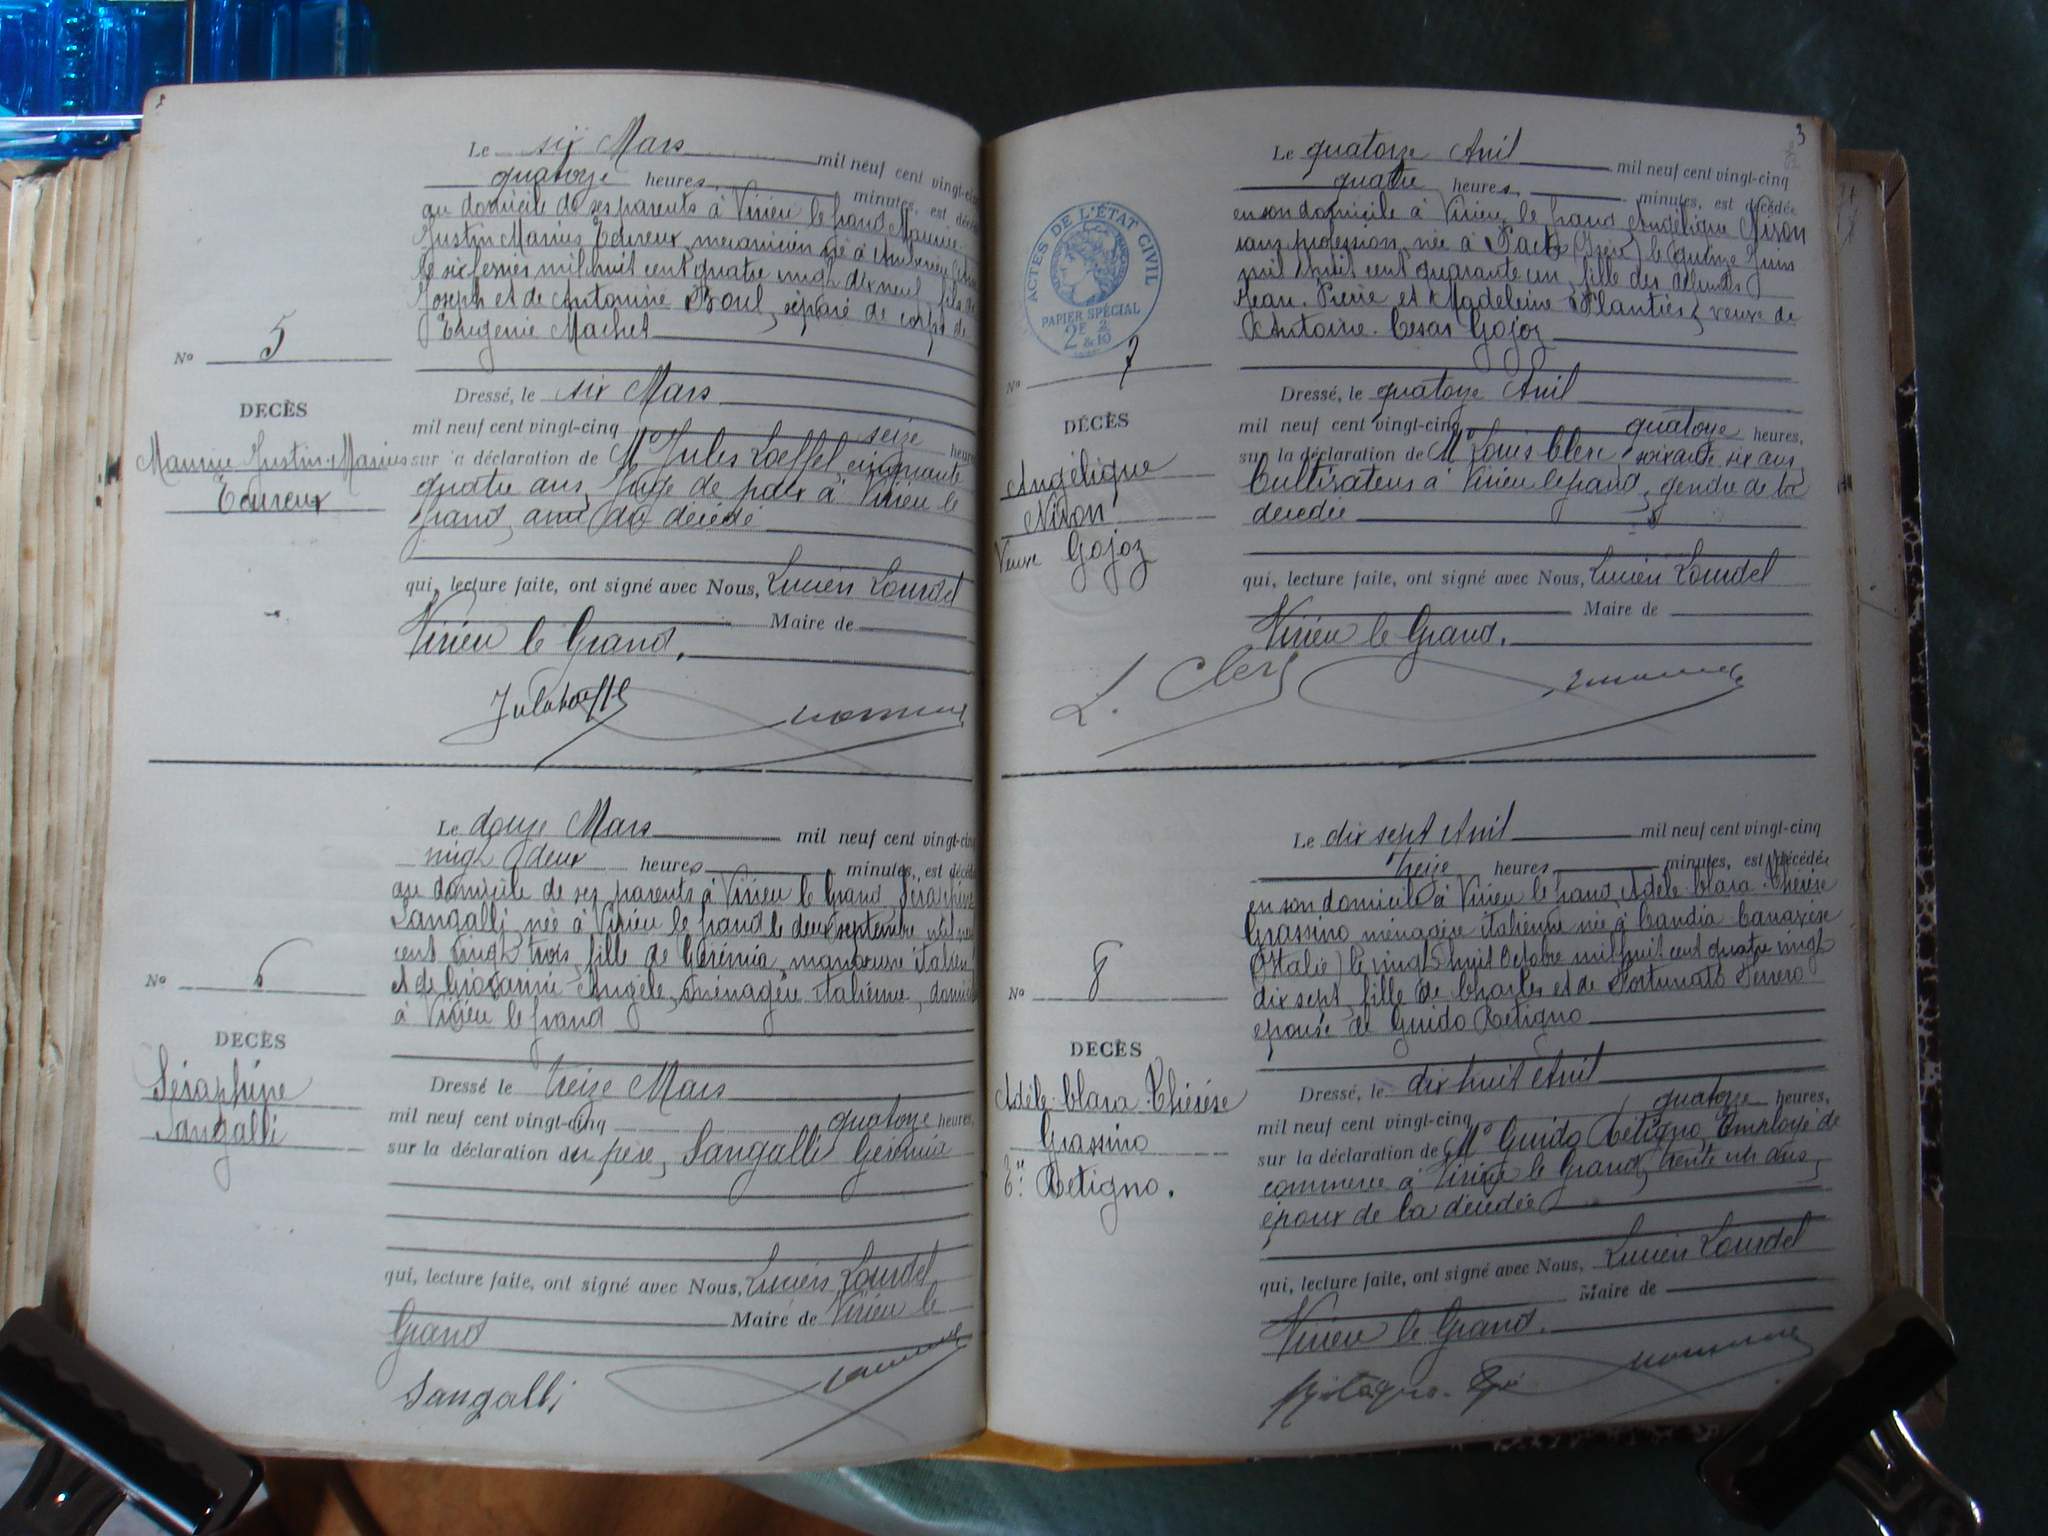 2
Le six Mars mil neuf cent vingt-cinq
quatorze heures, minutes, est décédé
au domicile de ses parents à Virieu le grand Maurice
Justin Marius mecanicien né à
le six mil huit cent quatre vingt dix neuf, fils de
Joseph et de Antoinine séparé de corps de
Eugenie Machet
No 5
DECÈS
Maurice Justin Marius
Dressé, le six Mars
mil neuf cent vingt-cinq seize heures
sur la déclaration de Mr Jules Loeffel, cinquante
quatre ans, Juge de paix à Virieu le
grand, ami du décédé
qui, lecture faite, ont signé avec Nous, Lucien Lourdel
Maire de
Virieu le Grand.
Le douze Mars mil neuf cent vingt-cinq
vingt deux heures minutes, est décédée
au domicile de ses parents à Virieu le Grand Séraphine
Sangalli, née à Virieu le grand le deux septembre mil neuf
cent vingt trois, fille de Gérémia, manoeuvre italien
et de Giovannie Angèle, ménagère italienne, domiciliés
à Virieu le grand
No 6
DECÈS
Séraphine
Sangalli
Dressé le treize Mars
mil neuf cent vingt-cinq quatorze heures,
sur la déclaration du père, Sangalli Gérémia
qui, lecture faite, ont signé avec Nous, Lucien Lourdel
Maire de Virieu le
Grand
Sangalli
3
Le quatorze Avril mil neuf cent vingt-cinq
quatre heures, minutes, est décédée
en son domicile à Virieu le grand Angélique Nison
sans profession, née à Pact (Isère) le quinze Juin
mil huit cent quarante un, fille des défunts
Jean Pierre et Madeleine Plantier, veuve de
Antoine Cesar Gojoz
ACTES DE L'ÉTAT CIVIL
PAPIER SPÉCIAL
2F & 2/10
No 7
DÉCÈS
Angélique
Nison
Veuve Gojoz
Dressé, le quatorze Avril
mil neuf cent vingt-cinq quatorze heures,
sur la déclaration de Mr Louis Clerc, soixante six ans,
Cultivateur à Virieu le grand, gendre de la
décédée
qui, lecture faite, ont signé avec Nous, Lucien Lourdel
Maire de
Virieu le Grand.
L. Clerc
Le dix sept Avril mil neuf cent vingt-cinq
treize heures minutes, est décédée
en son domicile à Virieu le grand, Adèle Clara Thérèse
Grassino ménagère italienne née à Candia Canavèse
(Italie) le vingt huit Octobre mil huit cent quatre vingt
dix sept, fille de Charles et de Fortunato Ferrero
épouse de Guido Retigno
No 8
DECÈS
Adèle Clara Thérèse
Grassino
Retigno.
Dressé, le dix huit Avril
mil neuf cent vingt-cinq quatorze heures,
sur la déclaration de Mr Guido Retigno, Employé de
commerce à Virieu le Grand, trente un ans,
époux de la décédée
qui, lecture faite, ont signé avec Nous, Lucien Lourdel
Maire de
Virieu le Grand.